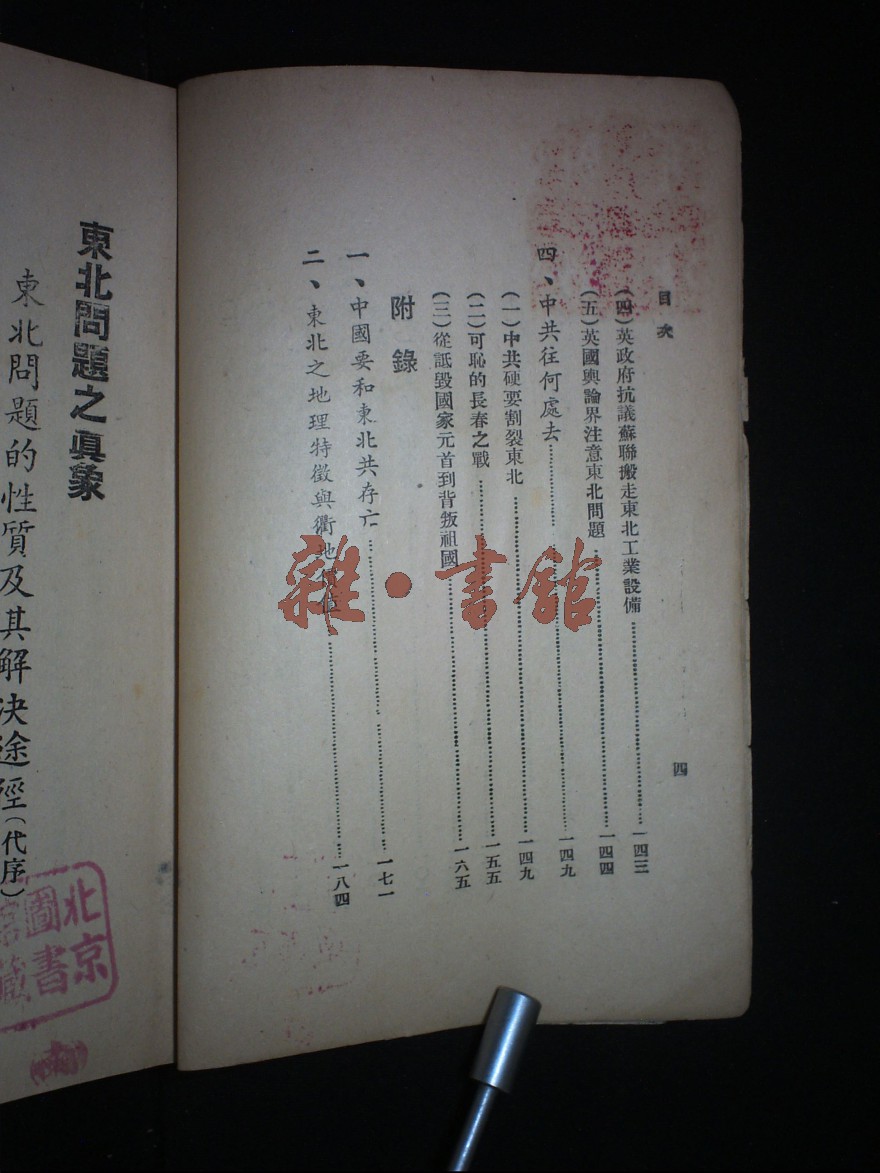 目次
四
(四)英政府抗議蘇聯搬走東北工業設備……一四三
(五)英國輿論界注意東北問題……一四四
四、中共往何處去……一四九
(一)中共硬要割裂東北……一四九
(二)可恥的長春之戰……一五五
(三)從詆毀國家元首到背叛祖國……一六五
附錄
一、中國要和東北共存亡……一七一
二、東北之地理特徵與衢地價值……一八四
東北問題之眞象
東北問題的性質及其解決途徑(代序)
北京
圖書
館藏
雜·書館